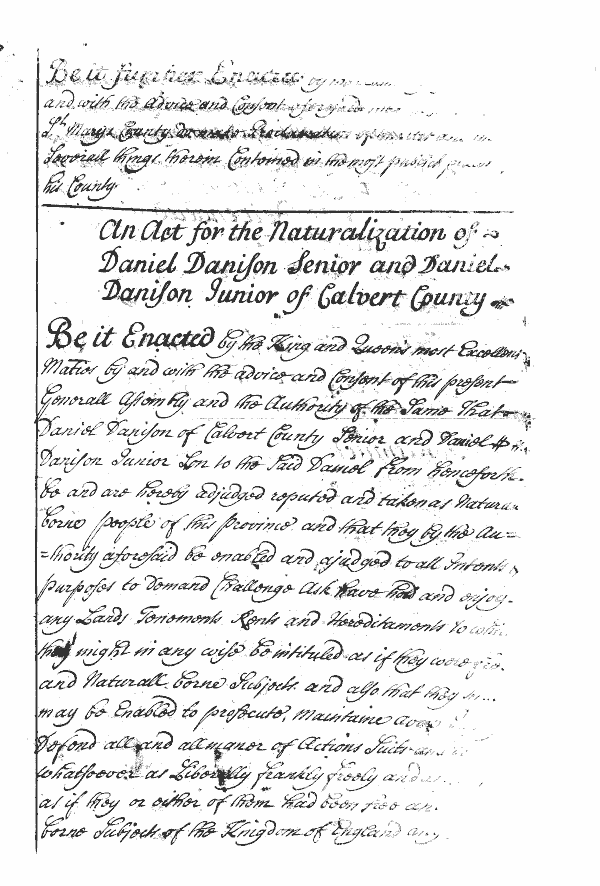 Be it further Enacted by
and with the Advice and Consent aforesaid
St Marys County to make Proclamation of
Severall things therein Contained in the most publick places
his County
An Act for the Naturalization of
Daniel Danison Senior and Daniel
Danison Junior of Calvert County
Be it Enacted by the King and Queens most Excellent
Maties by and with the advice and Consent of this present
Generall Assembly and the Authority of the Same That
Daniel Danison of Calvert County Senior and Daniel
Danison Junior Son to the Said Daniel from henceforth
be and are hereby adjudged reputed and taken as Natura
borne people of this Province and that they by the Au=
=thority aforesaid be enabled and ajudged to all Intents &
purposes to Demand Challenge Ask have hold and enjoy
any Lands Tenements Rents and Hereditaments to
they might in any wise be intituled as if they were
and Naturall borne Subjects and also that they
may be Enabled to prosecute, Maintaine
Defend all and all maner of Actions Suits
whatsoever as Liberally frankly freely and
as if they or either of them had been free an
borne Subjects of the Kingdom of England any